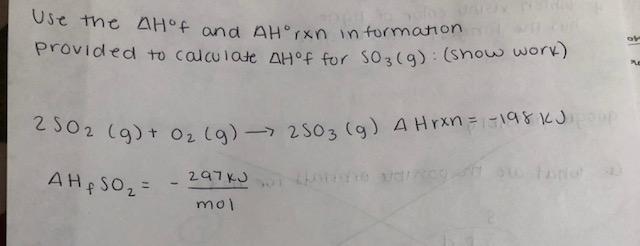 Use the ΔH°f and ΔH°rxn information
provided to calculate ΔH°f for SO₃(g): (show work)
2SO₂ (g) + O₂ (g) → 2SO₃ (g) ΔHrxn = -198 KJ
ΔHfSO₂ = - 297 KJ
mol